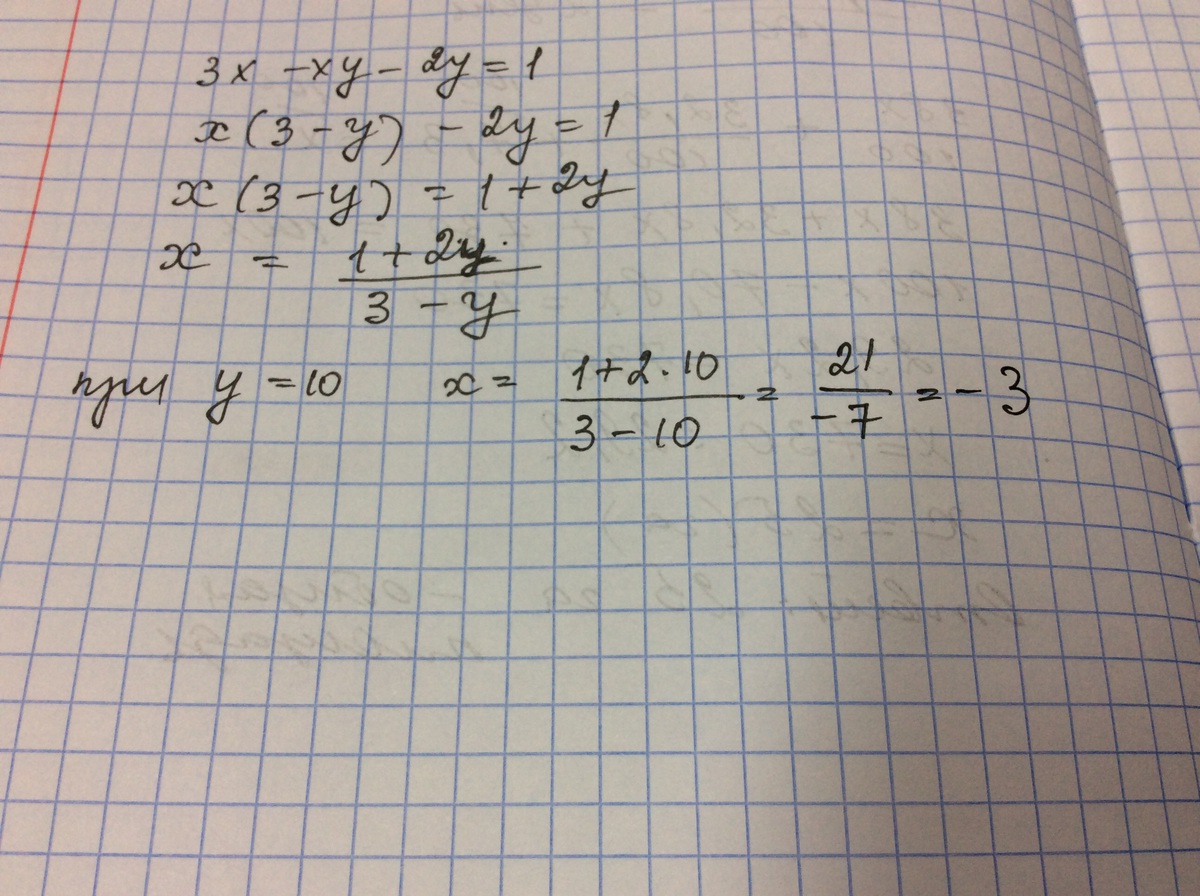 3x - xy - 2y = 1
x(3 - y) - 2y = 1
x(3 - y) = 1 + 2y
x = \frac{1 + 2y}{3 - y}
при y = 10 x = \frac{1+2·10}{3-10} = \frac{21}{-7} = -3